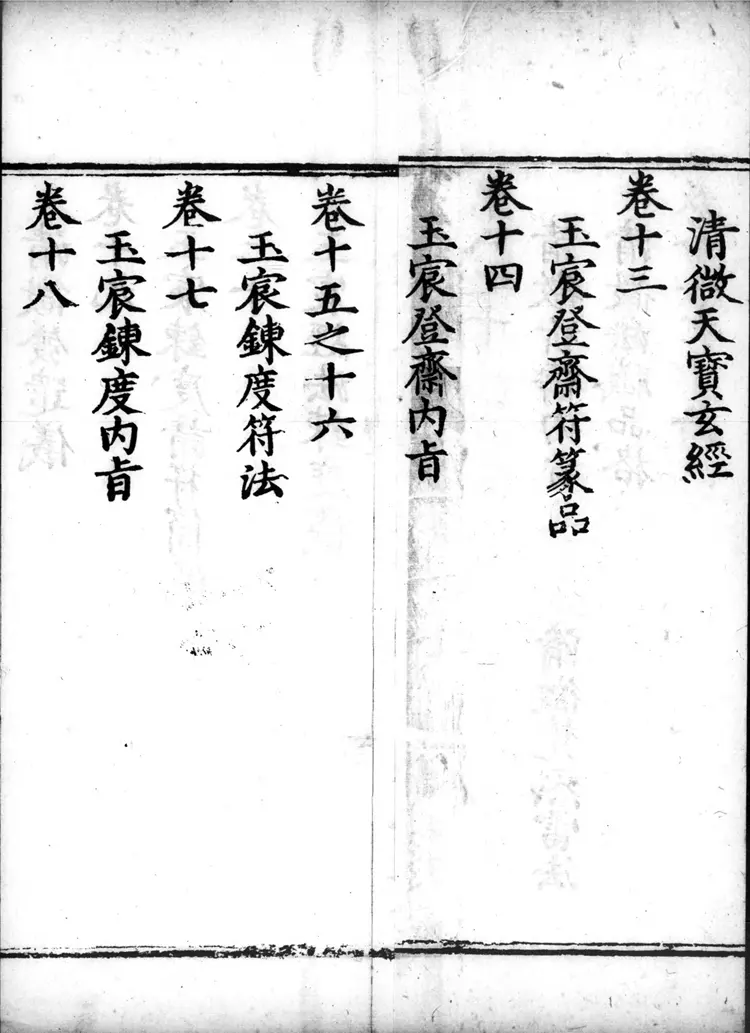 清微天寶玄經
卷十三
玉宸登齋符篆品
卷十四
玉宸登齋內旨
卷十五之十六
玉宸鍊度符法
卷十七
玉宸鍊度內旨
卷十八